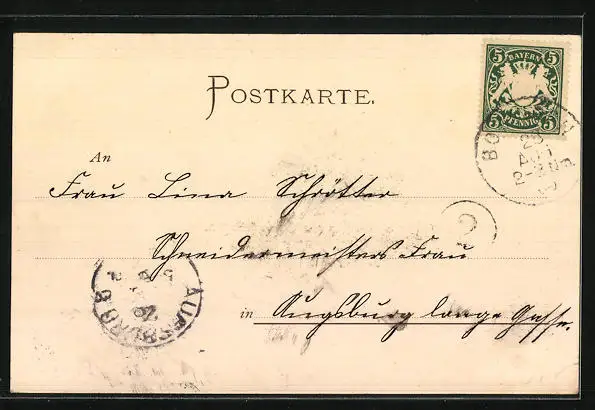 POSTKARTE.
5 BAYERN 5
5 PFENNIG 5
An
Frau Lina Schrötter
Schneidermeisters Frau
in Augsburg lange Gasse.
AUGSBURG 2